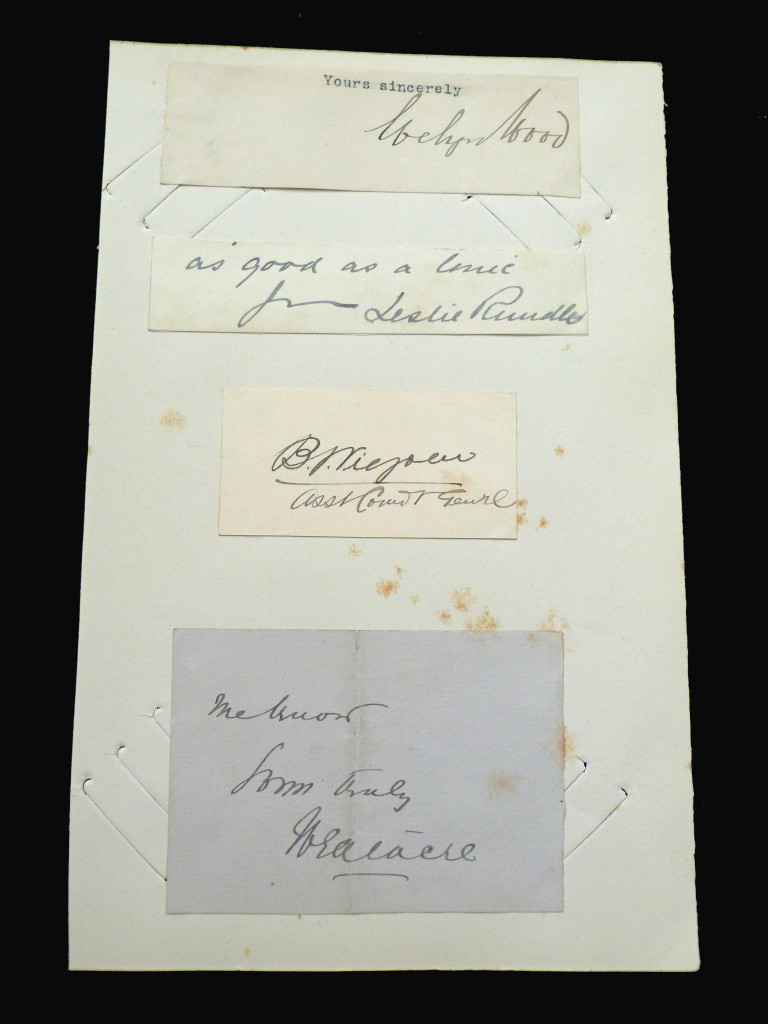 Yours sincerely
Evelyn Wood
as good as a tonic
from Leslie Rundle
B. J. Viljoen
Asst Comdt Genrl
me know
Yours truly